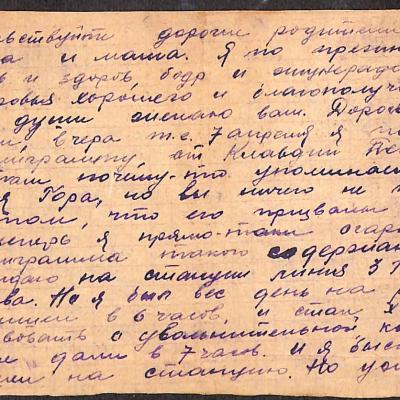 вствуйте дорогие родители
а и мама. Я по прежн
в и здоров бодр и жизнерадо
ровья хорошего и благополучи
души желаю вам. Дорог
вчера т.е. 7 апреля я по
грамму, от Клавдии
там почему-то упоминае
я Гора, но вы ничего не
том, что его призвали
теперь я прямо-таки
грамма такого содержан
даю на станции линия 3
ва. Но я был вес день на р
шли в 6 часов, и стал х
вовать с увольнительной к
не дали в 7 часов. И я быс
на станцию. Но у